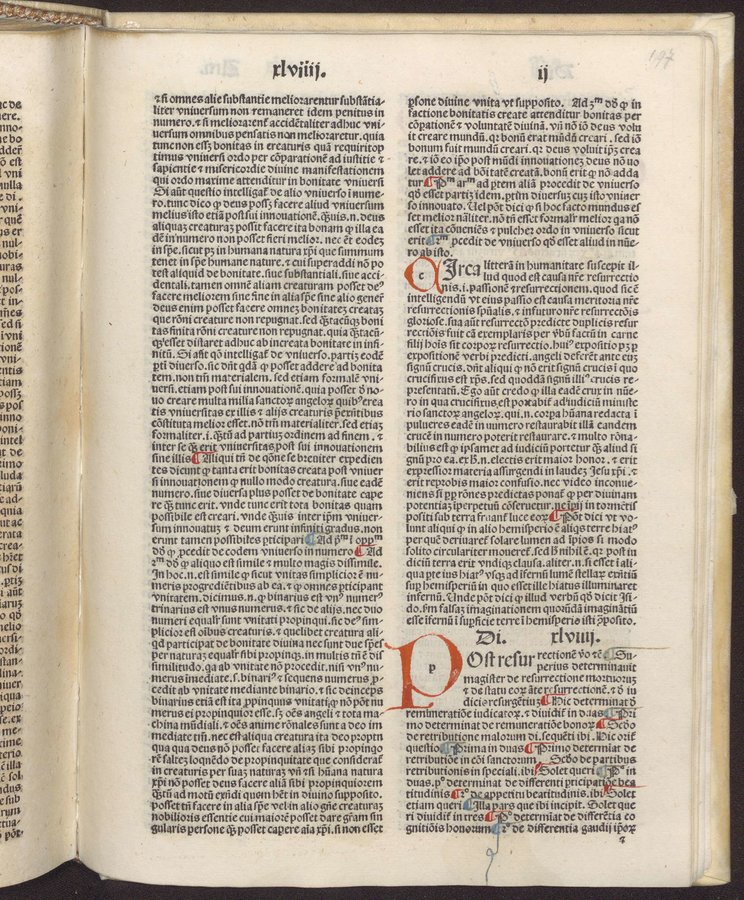 xlviiij.
ij
197
⁊ si omnes alie substantie meliorarentur substãtia-
liter vniuersum non remaneret idem penitus in
numero. ⁊ si meliorarent̃ accidẽtaliter adhuc vni
uersum omnibus pensatis non melioraretur. quia
tunc non esset bonitas in creaturis quã requirit op
timus vniuersi ordo per cõparationẽ ad iusticie ⁊
sapientie ⁊ misericordie diuine manifestationem
qui ordo maxime attenditur in bonitate vniuersi
Si aũt questio intelligat̃ de alio vniuerso i nume-
ro. tunc dico ꝙ deus posset facere aliud vniuersum
melius isto etiã post sui innouationẽ. q̃uis .n. deus
aliquas creaturas possit facere ita bonam ꝙ illa ea
dẽ in numero non posset fieri melior. nec ẽt eodẽ
in sp̃e. sicut pʒ in humana natura xp̃i que summum
tenet in sp̃e humane nature. ⁊ cui superaddi nõ po
test aliquid de bonitate. siue substantiali. siue acci-
dentali. tamen omnẽ aliam creaturam posset deꝰ
facere meliorem siue sine in alia sp̃e siue alio genẽ
deus enim posset facere omnez bonitatez creatas
que rõni creature non repugnat. sed q̃tacũqʒ boni
tas finita rõni creature non repugnat. quia q̃tacũ-
qʒ esset distaret adhuc ab increata bonitate in infi-
nitũ. Si aũt qõ intelligat̃ de vniuerso. partiʒ eodẽ
ꝑti diuerso. sic dñt qdã ꝙ posset addere ad bonita
tem. non tñ materialem. sed etiam formalẽ vni-
uersi. etiam post sui innouationẽ. quia posset d̾ no-
uo creare multa milia sanctorꝝ angelorꝝ quibꝰ crea
tis vniuersitas ex illis ⁊ alijs creaturis p̃exñtibus
cõstituta melior esset. nõ tñ materialiter. sed etiaʒ
formaliter. i. q̃tũ ad partiuʒ ordinem ad finem. ⁊
inter se q̃ʒ erit vniuersitas post sui innouationem
sine illis. Aliqui tñ de qõne se breuiter expedien
tes dicunt ꝙ tanta erit bonitas creata post vniuer
si innouationem ꝙ nullo modo creatura. siue eadẽ
numero. siue diuersa plus posset de bonitate cape
re q̃ʒ tunc erit. vnde tunc erit tota bonitas quam
possibile est creari. vnde q̃uis inter ipm vniuer-
sum innouatuʒ ⁊ deum erunt infiniti gradus. non
erunt tamen possibiles pticipari. Ad pᵐ i opp̃m
dõ ꝙ ꝓcedit de eodem vniuerso in numero. Ad
2ᵐ dõ ꝙ aliquo est simile ⁊ multo magis dissimile.
In hoc .n. est simile ꝙ sicut vnitas simplicior ẽ nu-
meris progrediẽtibus ab ea. ⁊ ꝙ omnes pticipant
vnitatem. dicimus .n. ꝙ binarius est vnꝰ numerꝰ
trinarius est vnus numerus. ⁊ sic de alijs. nec duo
numeri equalr̃ sunt vnitati propinqui. sic deꝰ sim-
plicior est oĩbus creaturis. ⁊ quelibet creatura ali-
qd participat de bonitate diuina nec sunt due sp̃es
per naturaʒ equalr̃ sibi propinqʒ. in multis tñ ẽ dis
similitudo. qa ab vnitate nõ procedit. nisi vnꝰ nu-
merus ĩmediate. s. binariꝰ ⁊ sequens numerus ꝓ-
cedit ab vnitate mediante binario. ⁊ sic deinceps
binarius etiã est ita ꝓpinquus vnitati ꝙ nõ põt nu
merus ei propinquior esse. sʒ oẽs angeli ⁊ tota ma-
china mũdiali. ⁊ oẽs anime rõnales sunt a deo im
mediate tm̃. nec est aliqua creatura ita deo propin
qua qua deus nõ posset facere aliaʒ sibi propinqo
rẽ saltez loqnẽdo de propinquitate que considerat̃
in creaturis per suaʒ naturaʒ vñ ⁊ si hũana natura
xp̃i nõ posset deus facere aliã sibi propinquiorem
q̃tũ ad motũ exñdi quem hẽt in diuino supposito.
posset tñ facere in alia sp̃e vel in alio gñe creaturaʒ
nobilioris essentie cui maiorẽ posset dare gr̃am sin
gularis persone q̃ʒ posset capere aĩa xp̃i. si non esset
ꝑsone diuine vnita vt supposito. Ad 3ᵐ dõ ꝙ in
factione bonitatis create attenditur bonitas per
cõpationẽ ⁊ voluntatẽ diuinã. vñ nõ iõ deus volu
it creare mundũ. qꝛ bonũ erat mũdũ creari. sed iõ
bonum fuit mundũ creari. qꝛ deus voluit ipʒ crea
re. ⁊ iõ eo ipo post mũdi innouationeʒ deus nõ uo
let addere ad bõitatẽ creatã. bonũ erit ꝙ nõ adda
tur. Pᵐ arᵐ ad ptem aliã procedit de vniuerso
qõ esset partiʒ idem. ptim̃ diuersuʒ cuʒ isto vniuer
so innouato. Uel põt dici ꝙ si hoc facto mundus es
set melior nãliter. nõ tñ esset formalr̃ melior qa nõ
esset ita cõueniẽs ⁊ pulcher ordo in vniuerso sicut
erit. 2ᵐ ꝓcedit de vniuerso qõ esset aliud in nũe-
ro ab isto.
c Irca litterã in humanitate suscepit il-
lud quod est causa nr̃e resurrectio
nis. i. passionẽ ⁊ resurrectionem. quod sic ẽ
intelligendũ vt eius passio est causa meritoria nr̃e
resurrectionis spũalis. ⁊ in futuro nr̃e resurrectiõis
gloriose. sua aũt resurrectõ predicte duplicis resur
rectiõis fuit cã exemplaris per vbũ factũ in carne
filij hoĩs sit corpoꝝ resurrectio. huiꝰ expositio pʒ ꝑ
expositionẽ verbi predicti. angeli deferẽt ante euʒ
signũ crucis. dñt aliqui ꝙ nõ erit signũ crucis i quo
crucifixus est xp̃s. sed quoddã signũ illiꝰ crucis re-
presentatiũ. Ego aũt credo ꝙ illa eadẽ crux in nũe-
ro in qua crucifixus est portabit̃ ad iudiciũ ministe
rio sanctorꝝ angelorꝝ. qui .n. corpa hũana redacta ĩ
pulueres eadẽ in numero restaurabit illã eandem
crucẽ in numero poterit restaurare. ⁊ multo rõna-
bilius est ꝙ ipsamet ad iudiciũ portetur q̃ʒ aliud si
gnũ ꝓ ea. ex h̾ .n. electis erit maior honor. ⁊ erit
expressior materia assurgendi in laudeʒ Jesu xp̃i. ⁊
erit reprobis maior confusio. nec video inconue-
niens si ꝑp rõnes predictas ponat̃ ꝙ per diuinam
potentiaʒ ĩperpetuũ cõseruetur. ne ipi in tormẽtis
positi sub terra fruant̃ luce eoꝝ. Põt dici vt vo-
lunt aliqui ꝙ in alio hemisperio ẽ aliqs terre hiatꝰ
per quẽ deriuaret̃ solare lumen ad ipos si modo
solito circulariter moueret̃. sed h̾ nihil ẽ. qꝛ post iu
diciũ terra erit vndiqʒ clausa. aliter .n. si esset i ali-
qua pte ius hiatꝰ vsqʒ ad ĩfernũ lumẽ stellaꝝ exñtiũ
suꝑ hemisperiũ in quo esset ille hiatus illuminaret̃
infernũ. Unde põt dici ꝙ illud verbũ qõ dicit Isi-
do. Fm̃ falsaʒ imaginationem quorũdã imaginãtiũ
esse ĩfernũ ĩ supficie terre i hemisperio isti oposito.
Di. xlviiij.
p Ost resurrectionẽ vo ⁊c̃. Su-
perius determinauit
magister de resurrectione mortuorꝝ
⁊ de statu eoꝝ ãte resurrectionẽ. ⁊ d̾ iu
dicio resurgẽtiuʒ. Hic determinat d̾
remuneratiõe iudicatorꝝ. ⁊ diuidit̃ in duas. Pri
mo determinat de remuneratiõe bonorꝝ. Scd̾o
de retributione malorum. di. sequẽti ibi. Hic orit̃
questio. Prima in duas. Primo determiat de
retributiõe in cõi sanctorum. Scd̾o de partibus
retributionis in speciali. ibi. Solet queri. Pᵃ in
duas. pᵒ determinat de differenti pticipatiõe bea
titudinis. 2ᵒ de appetitu beatitudinis. ibi. Solet
etiam queri. Illa pars que ibi incipit. Solet que
ri diuidit̃ in tres. Pᵒ determĩat de differẽtia co
gnitiõis honorum. 2ᵒ de differentia gaudij ip̃oꝝ
⁊